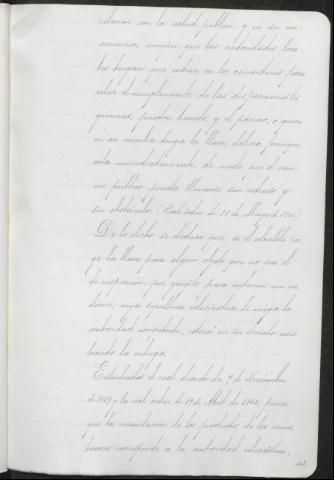 relación con la salud pública; y en su con-
secuencia siempre que las autoridades loca-
les tengan que entrar en los cementerios para
celar el cumplimiento de las disposiciones hi-
giénicas, pueden hacerlo y el párroco, ó quien
en su nombre tenga la llave, deberá franque-
arla inmediatamente, de modo que el servi-
cio público pueda llenarse sin retraso y
sin obstáculo. (Real orden de 18 de Mayo de
De lo dicho se deduce que, si el alcalde exi-
ge la llave para algún objeto que no sea el
de inspección, por ejemplo para enterrar un ca-
dáver, cuya sepultura eclesiástica le niega la
autoridad competente, estará en su derecho resis-
tiendo la entrega.
Estudiados el real decreto de 9 de Noviembre
de y la real orden de 19 de Abril de parece
que la recaudación de los productos de los cemen-
terios corresponde a la autoridad eclesiástica,